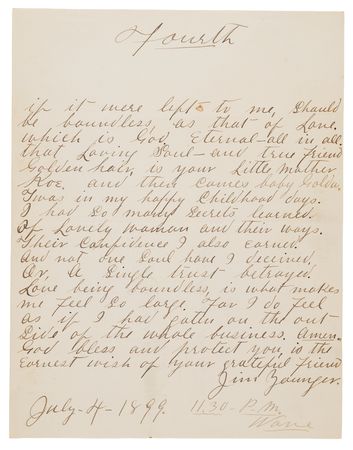 Fourth
if it were left to me, Should
be boundless, as that of Love.
which is God, Eternal-all in all.
that Loving Soul-and true friend
Golden hair, is your Little Mother
Roe. and then comes baby Golden.
Twas in my happy Childhood days.
I had So many Secrets learned.
Of Lovely woman and their ways.
Their Confidence I also Earned.
And not one Soul have I deceived,
Or, a Single trust betrayed.
Love being boundless, is what makes
me feel So large. For I do feel
as if I had gotten on the out
Side of the whole business. Amen-
God bless and protect you, is the
Earnest wish of your grateful friend
Jim Younger.
July-4-1899. 11.30-P.M.